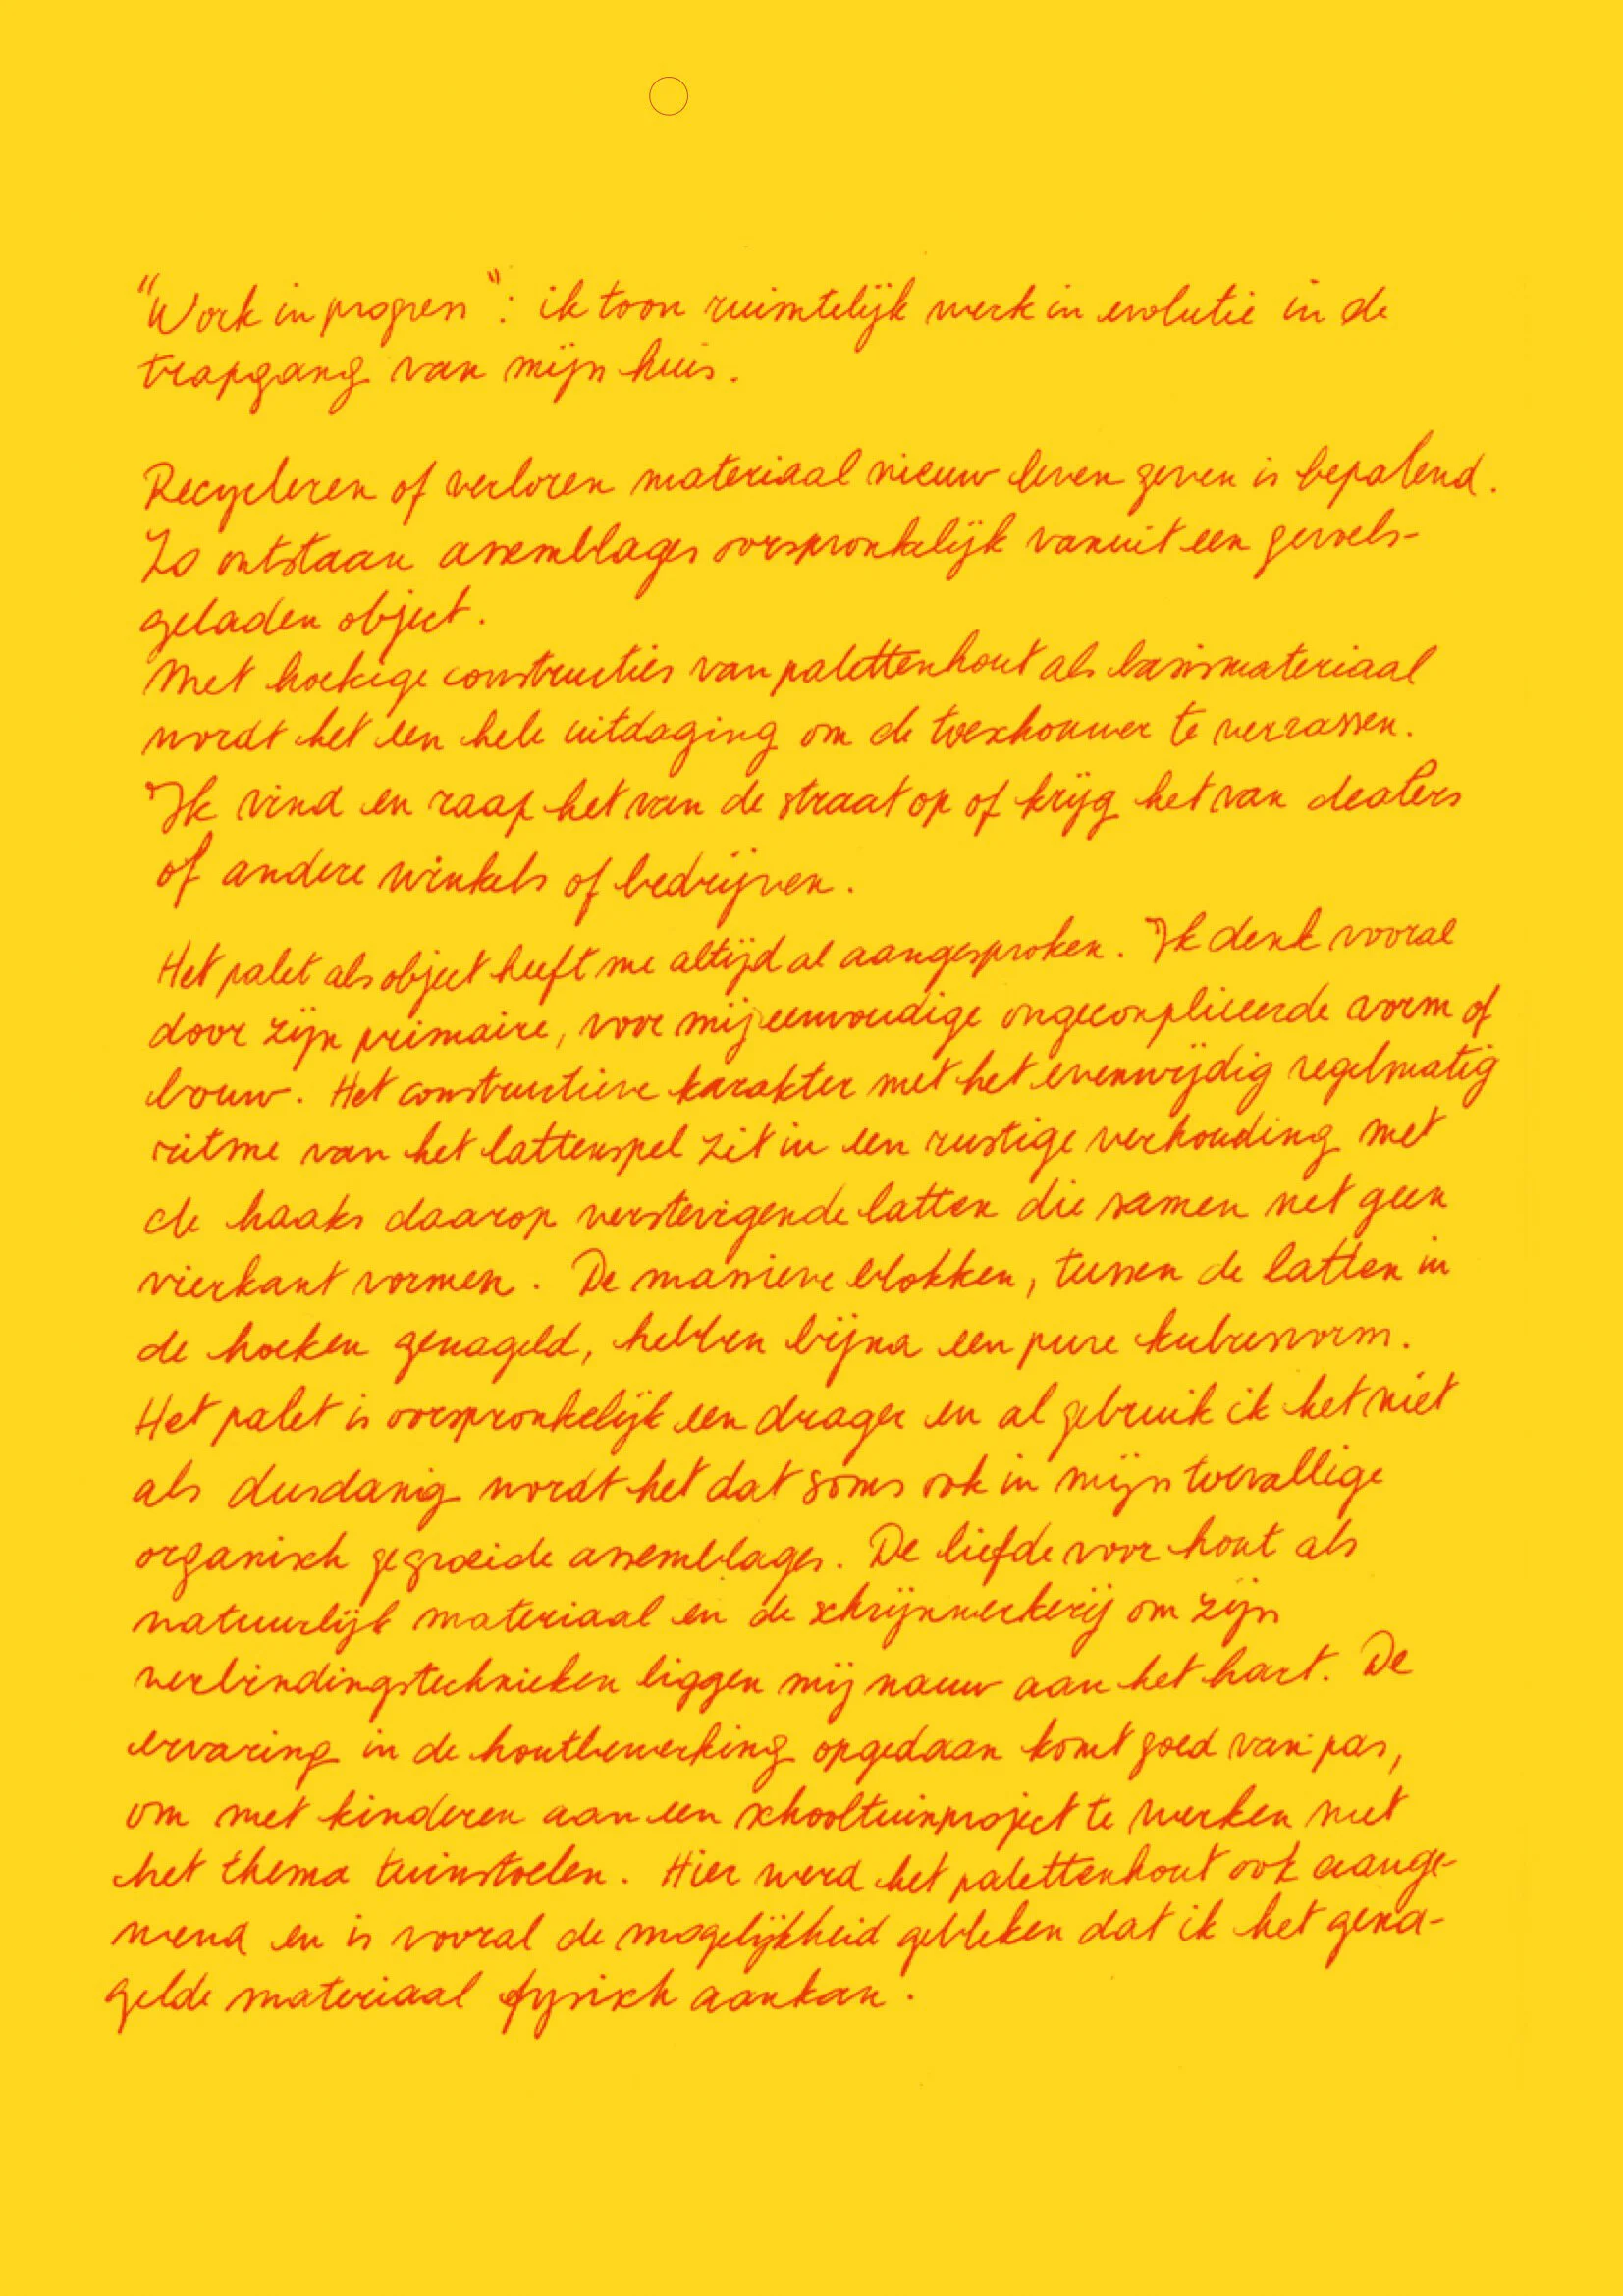 "Work in progress": ik toon ruimtelijk werk in evolutie in de
trapgang van mijn huis.
Recycleren of verloren materiaal nieuw leven geven is bepalend.
Zo ontstaan assemblages oorspronkelijk vanuit een gevoels-
geladen object.
Met hoekige constructies van palettenhout als basismateriaal
wordt het een hele uitdaging om de toeschouwer te verrassen.
Ik vind en raap het van de straat op of krijg het van dealers
of andere winkels of bedrijven.
Het palet als object heeft me altijd al aangesproken. Ik denk vooral
door zijn primaire, voor mij eenvoudige ongecompliceerde vorm of
bouw. Het constructieve karakter met het evenwijdig regelmatig
ritme van het lattenspel zit in een rustige verhouding met
de haaks daarop verstevigende latten die samen net geen
vierkant vormen. De massieve blokken, tussen de latten in
de hoeken genageld, hebben bijna een pure kubusvorm.
Het palet is oorspronkelijk een drager en al gebruik ik het niet
als dusdanig wordt het dat soms ook in mijn toevallige
organisch gegroeide assemblages. De liefde voor hout als
natuurlijk materiaal en de schrijnwerkerij om zijn
verbindingstechnieken liggen mij nauw aan het hart. De
ervaring in de houtbewerking opgedaan komt goed van pas,
om met kinderen aan een schooltuinproject te werken met
het thema tuinstoelen. Hier werd het palettenhout ook aange-
wend en is vooral de mogelijkheid gebleken dat ik het gena-
gelde materiaal fysisch aankan.